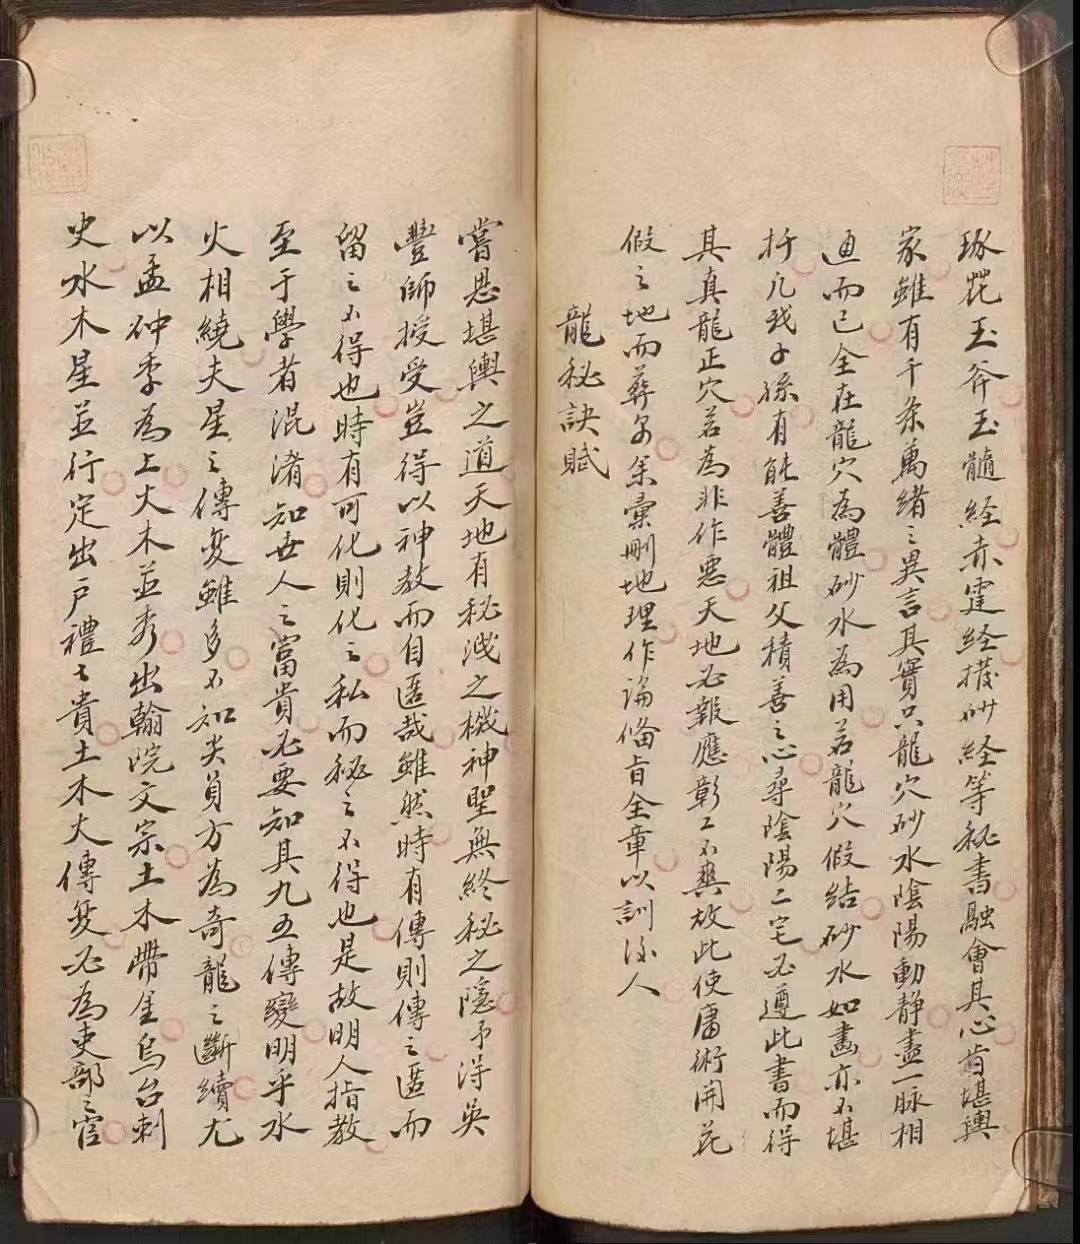 琢花玉斧玉髓経赤霆経撥砂経等秘書融會其心旨堪輿
家雖有千条萬緒之異言其實只龍穴砂水陰陽動静盡一脉相
通而已全在龍穴為體砂水為用若龍穴假結砂水如畫亦不堪
扦凡我子孫有能善體祖父積善之心尋陰陽二宅必遵此書而得
其真龍正穴若為非作惡天地必報應彰々不爽故此使庸術開花
假之地而葬尔余彙刪地理作論俻旨全章以訓後人
龍秘訣賦
嘗思堪輿之道天地有秘洩之機神聖無終秘之隱予得吳
豐師授受豈得以神教而自匿哉雖然時有傳則傳之匿而
留之不得也時有可化則化之私而秘之不得也是故明人指教
至于學者混淆知世人之富貴必要知其九五傳變明乎水
火相繞夫星之傳变雖多不知尖員方為奇龍之斷續尤
以孟仲季為上火木並秀出翰院文宗土木帶金烏台刺
史水木星並行定出户禮之貴土木火傳变必為吏部之官